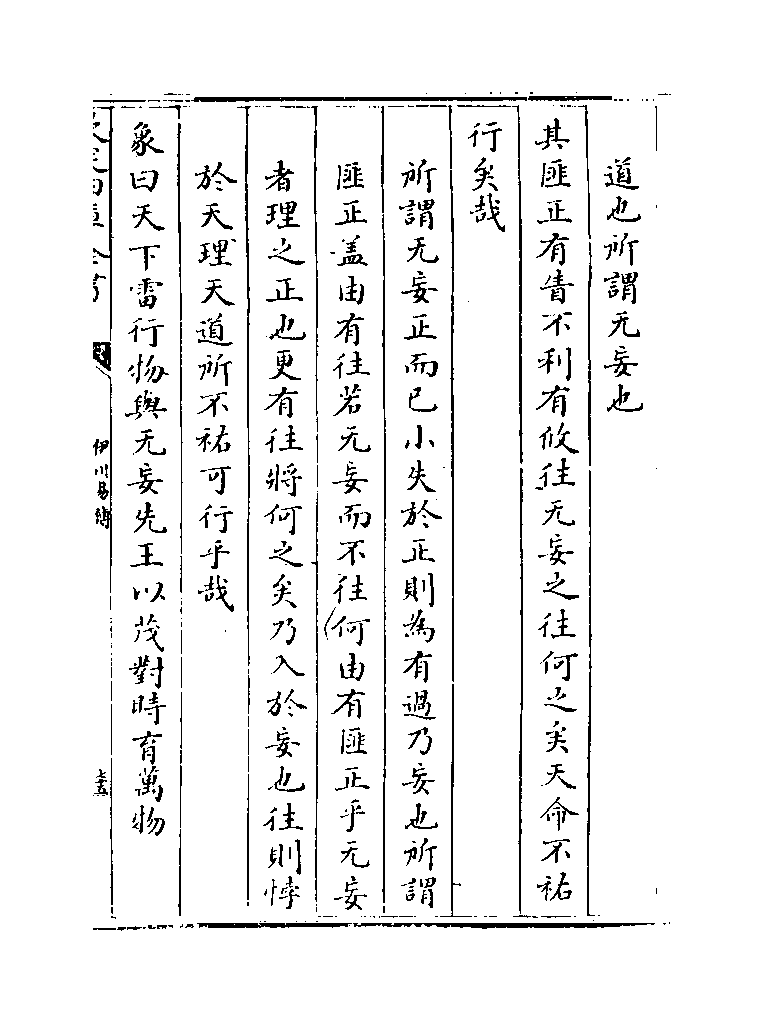 道也所謂无妄也
其匪正有眚不利有攸往无妄之往何之矣天命不祐
行矣哉
所謂无妄正而已小失於正則為有過乃妄也所謂
匪正盖由有往若无妄而不往何由有匪正乎无妄
者理之正也更有往將何之矣乃入於妄也往則悖
於天理天道所不祐可行乎哉
象曰天下雷行物與无妄先王以茂對時育萬物
伊川易傳